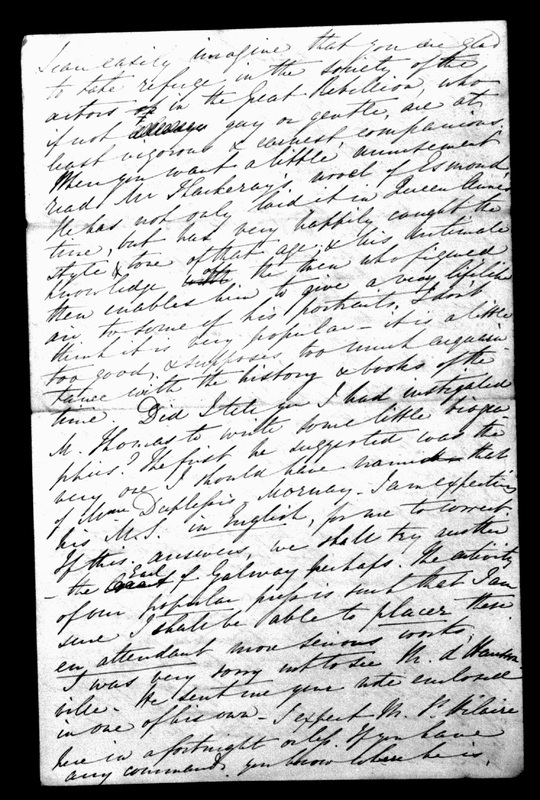 I can easily imagine that you are glad
to take refuge in the society of the
actors in the Great Rebellion, who
if not gay or gentle, are at
least vigorous & earnest companions.
When you want a little amusement
read Mr Thackeray's novel of Esmond.
He has not only laid it in Queen Anne's
time, but has very happily caught the
style & tone of that age; & his intimate
knowledge of the men who figured
then enables him to give a very lifelike
air to some of his portraits. I don't
think it is very popular - it is a little
too good, & supposes too much acquain
tance with the history & books of the
time. Did I tell you I had instigated
M. Thomas to write some little biogra
phies? The first he suggested was the
very one I should have named - that
of Mme Duplessis Mornay - I am expecting
his M.S. in English, for me to correct.
If this answers, we shall try another
- the Earl of Galway perhaps. The activity
of our popular press is such that I am
sure I shall be able to placer these
en attendant more serious works.
I was very sorry not to see M. d'Hausson
ville. He sent me your note enclosed
in one of his own - I expect M. St Hilaire
here in a fortnight or less. If you have
any commands, you know where he is.